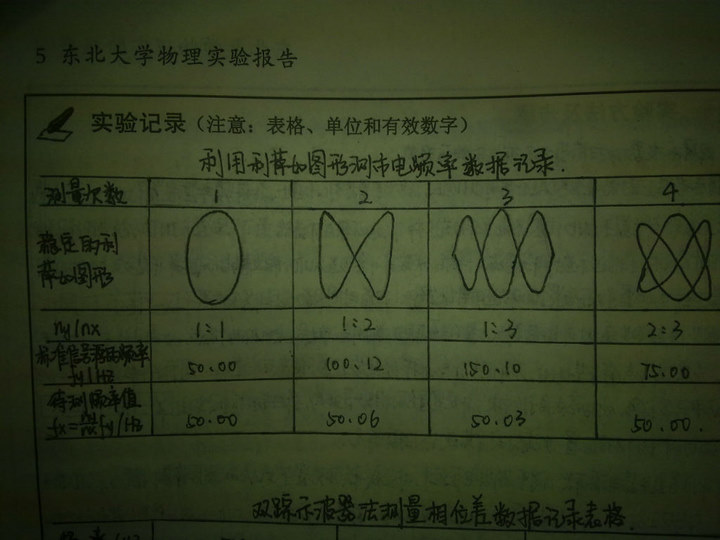 5 东北大学物理实验报告
实验记录（注意：表格、单位和有效数字）
利用利萨如图形测市电频率数据记录.
测量次数 1 2 3 4
稳定的利
萨如图形
ny/nx 1:1 1:2 1:3 2:3
标准信号源的频率
fy/Hz 50.00 100.12 150.10 75.00
待测频率值
fx=ny/nx fy/Hz 50.00 50.06 50.03 50.00.
双踪示波器法测量相位差数据记录表格.